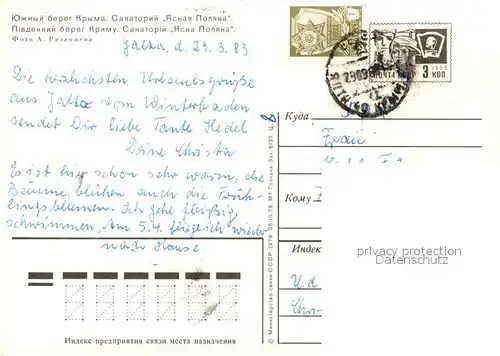 Южный берег Крыма. Санаторий „Ясная Поляна“.
Південний берег Криму. Санаторій „Ясна Поляна“.
Фото А. Рязанцева
Jalta, d. 29.3.83
Die herzlichsten Urlaubsgrüße
aus Jalta vom Winterbaden
sendet Dir liebe Tante Hedel
Deine Christa
Es ist hier schon sehr warm, die
Bäume blühen auch die Früh-
lingsblumen. Ich gehe fleißig
schwimmen. Am 5.4. fliege ich wieder
nach Hause.
Индекс предприятия связи места назначения
© Министерство связи СССР. 1978
ПОЧТА СССР 3 КОП.
1966
Куда
Frau
Кому
Индекс
privacy protection
Datenschutz